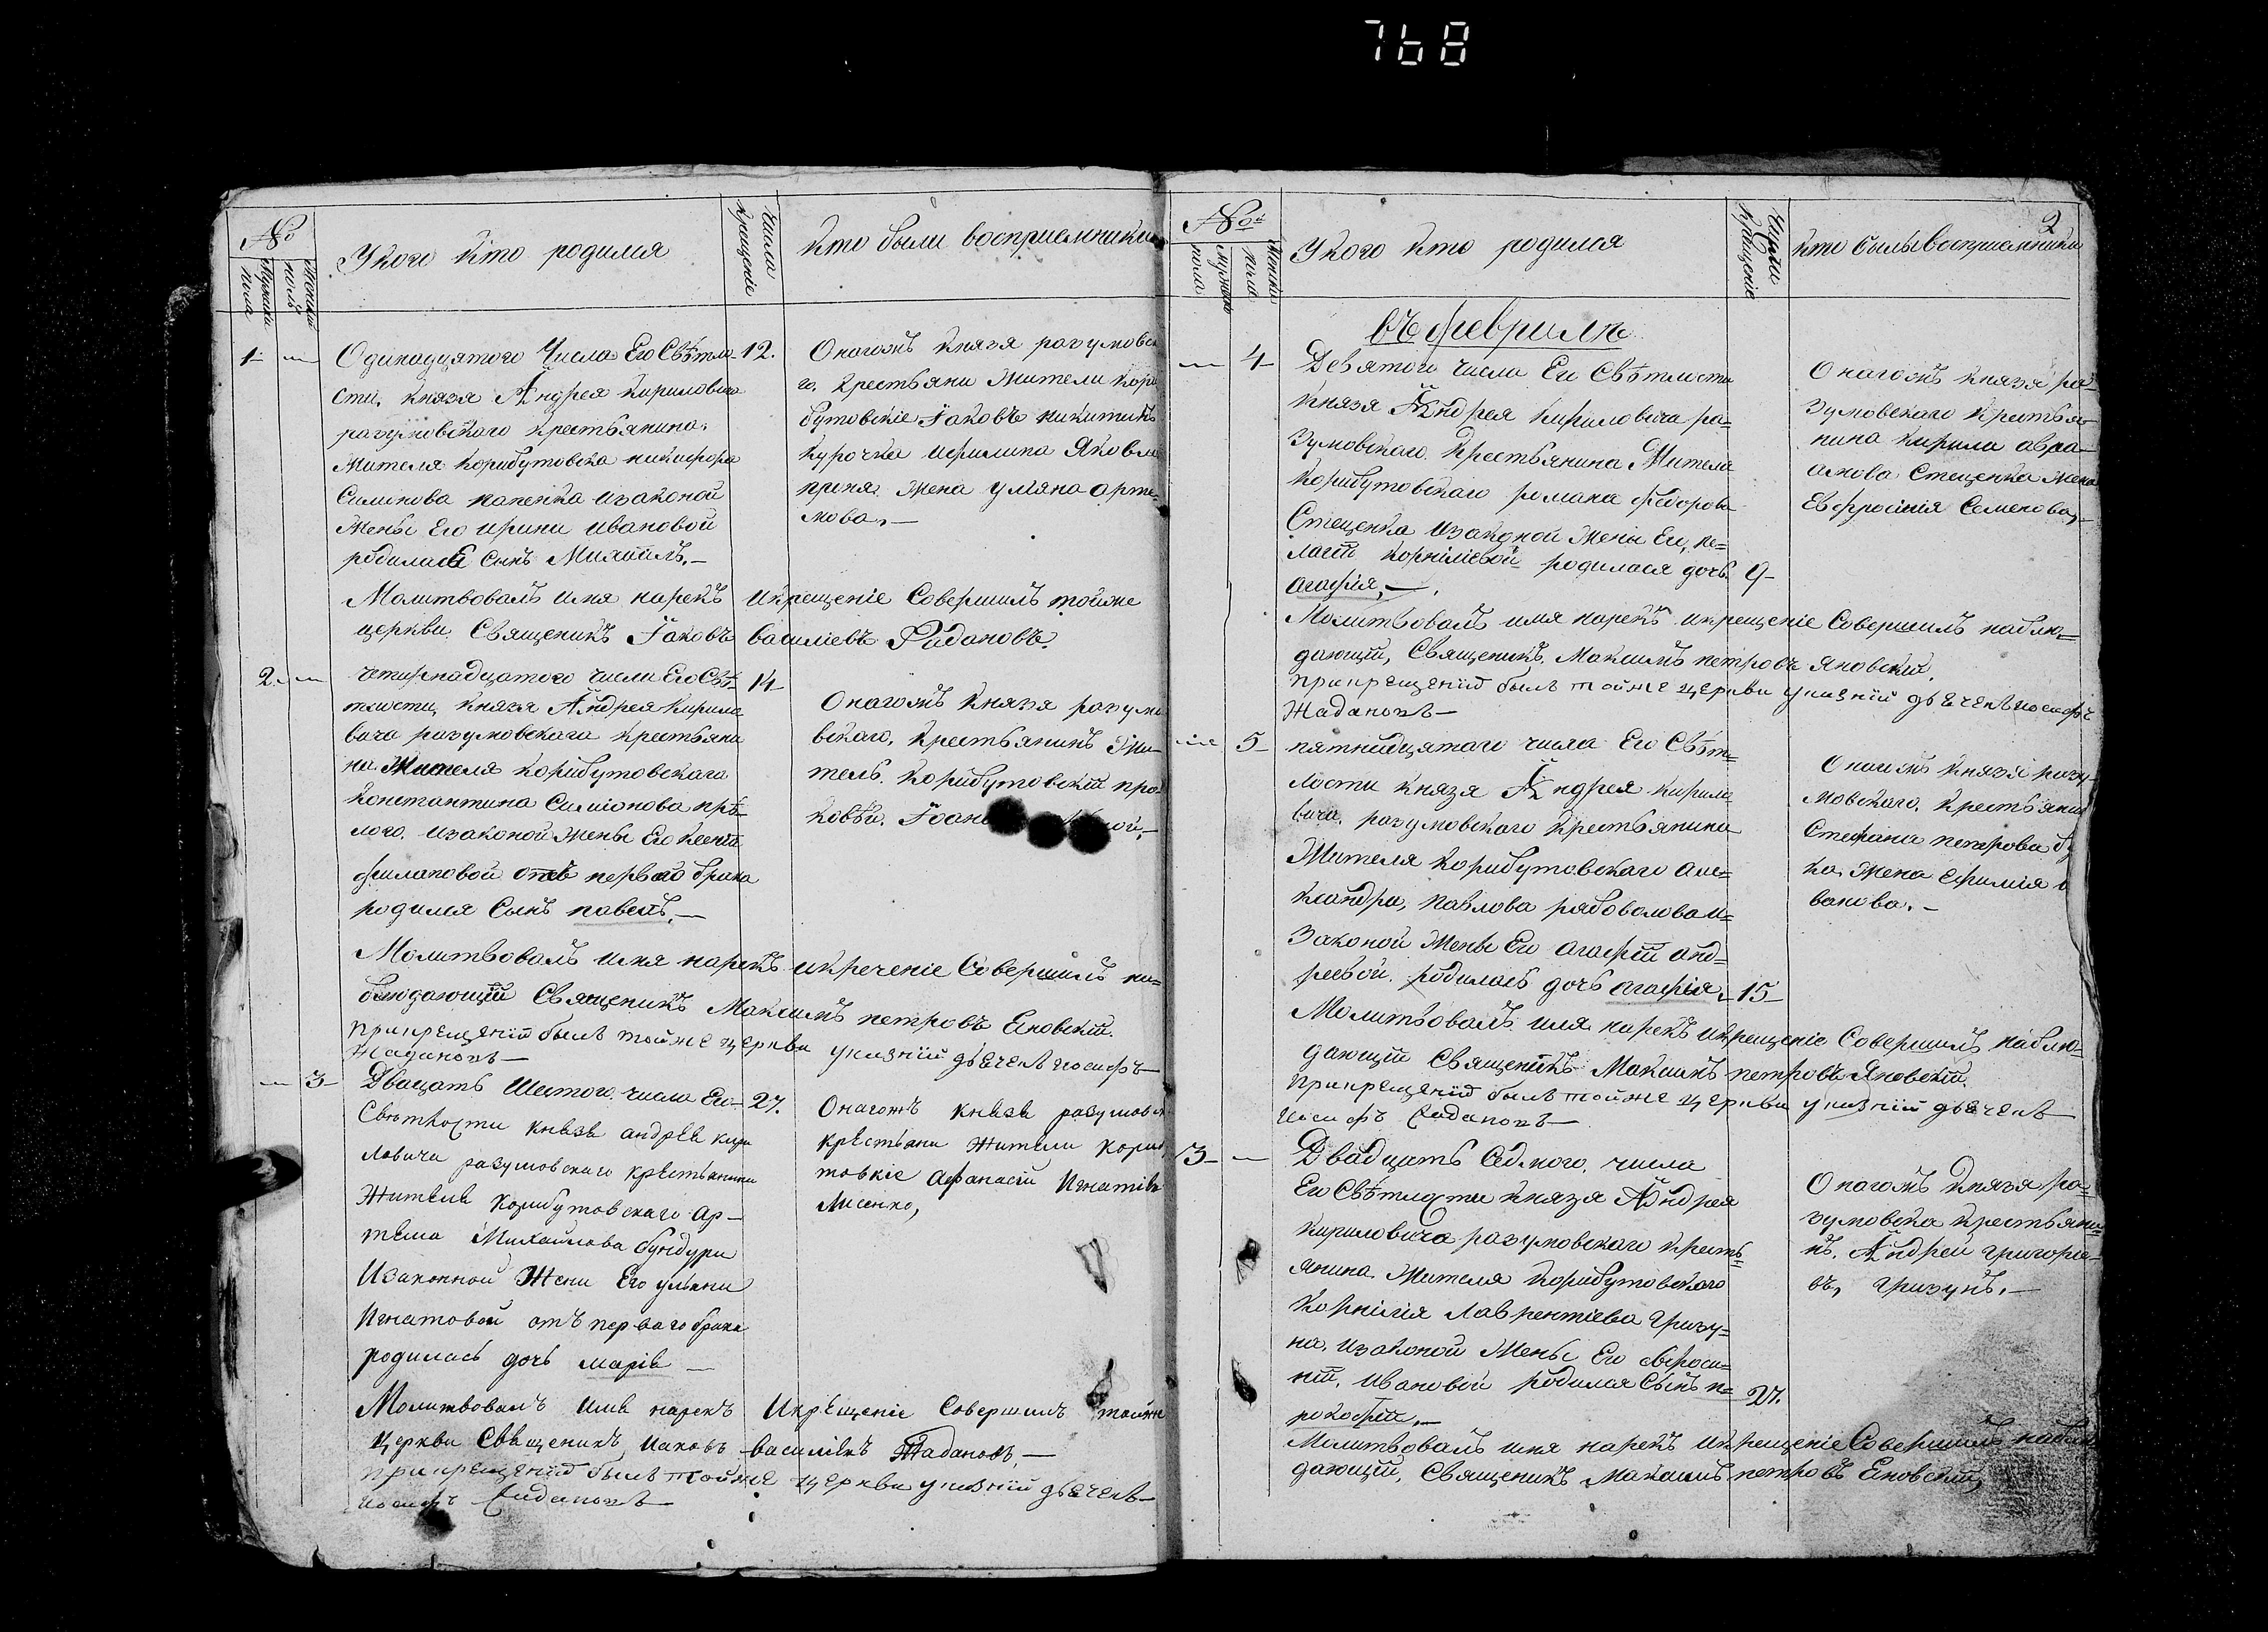 768
№
Мужеска пола
Женска пола
У кого кто родился
Числа крещение
Кто были восприемники
1
12.
Одинадцятого Числа Его Свѣтло-
сти, князя Андрея Кириловича
разумовского крестьянина
Жителя Корибутовска никифора
Симинова папенка изаконой
Жены Его ирини ивановой
родился Сынъ Михаилъ.—
Онагожъ князя разумовск
го, крестьяни Жители кори
бутовские Іаковъ никитинъ
Курочка ифилипа Яковле
Жена уляна арте-
мова.—
Молитвовалъ имя нарекъ икрещеніе Совершилъ тойже
церкви Священикъ Іаковъ василіевъ Жадановъ.
2.
14
четирнадцатого числа Его Свѣ-
тлости, князя Андрея Кирило
вича разумовскаго крестьяни
на Жителя корибутовскаго
константина Симионова
лого, изаконой жены Его ксеніи
филаповой отъ первого брака
родился Сынъ павелъ.—
Онагожъ князя разумо
вского, крестьянинъ Жи-
тель корибутовскій про
Іоан
Молитвовалъ имя нарекъ икречение Совершилъ на-
блюдающій Священикъ Максимъ петровъ Еновскій.
прикрещеніи былъ тойже церкви указній дьячекъ иосифъ
Жадановъ—
3
27.
Двацать Шестого числа Его
Свѣтлости князя андрѣя кири
ловича разумовскаго крѣстьянина
Жителя Корибутовскаго Ар-
тема Михайлова бундури
Изаконной Жени Его уляни
Игнатовой отъ перваго брака
родилась дочь марія —
Онагожъ князя разумовс
крѣстьяни Жители кориб
товкіе Афанасій Игнатів
Лисенко,
Молитвовалъ Имя нарекъ Икрѣщеніе Совершилъ тойже
Церкви Священикъ Иаковъ василіевъ Жадановъ.—
прикрещеніи былъ тойже церкви указній дьячекъ—
иосифъ Жадановъ—
2
№
Мужеска пола
Женска пола
У кого кто родился
Числа крещение
Кто были восприемники
въ февралѣ
4
Девятого числа Его Свѣтлости
князя Андрея Кириловича ра-
зумовскаго крестьянина Жителя
корибутовскаго романа федорова
Стеценка изаконой жены Его, пе-
лагіи корниліевой родилася дочь
агафія,—
9
Онагожъ князя ра-
зумовскаго крестья-
нина кирила авра-
амова Стеценка жена
Евфросинія Семенова,—
Молитвовалъ имя нарекъ икрещеніе Совершилъ наблю-
дающій, Священикъ, Максимъ петровъ яновскій.
прикрещеніи былъ тойже церкви указній дьячекъ иосифъ
Жадановъ—
5
пятнадцятаго числа Его Свѣт-
лости князя Андрея Кирило
вича, разумовского крестьянина
Жителя корибутовскаго але-
ксандра, павлова рябоволова и-
законой жены Его агафіи анд-
реевой, родилась дочь агафія.
15
Онагожъ князя разу-
мовскаго, крестьянин
Стефана петрова бу
ка, жена ефимія и
ванова.—
Молитвовалъ имя нарекъ икрещеніе Совершилъ наблю-
дающій Священикъ Максимъ петровъ Яновскій.
прикрещеніи былъ тойже церкви указній дьячекъ
иосифъ Жадановъ—
3
Двадцать Седмого, числа
Его Свѣтлости князя Андрея
Кириловича разумовскаго крестъ-
янина, Жителя корибутовскаго
корнилія лаврентіева гризу-
на, изаконой жены Его евфроси-
ніи, ивановой родился Сынъ п-
рокофій.—
27.
Онагожъ князя ра-
зумовска крестьяни-
нъ, Андрей григорие-
въ, гризунъ.—
Молитвовалъ имя нарекъ икрещеніе Совершилъ наблю
дающій, Священикъ Максимъ петровъ Еновскій,